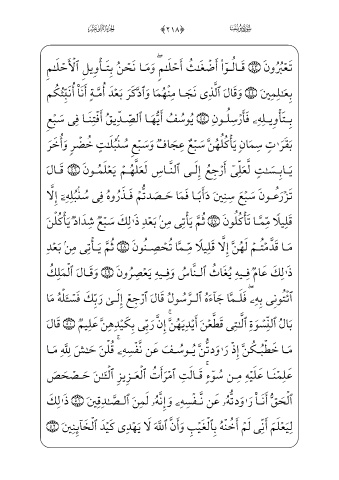 ﴿٢١٨﴾
تَعْبُرُونَ ۝ قَالُوٓا۟ أَضْغَـٰثُ أَحْلَـٰمٍ ۖ وَمَا نَحْنُ بِتَأْوِيلِ ٱلْأَحْلَـٰمِ
بِعَـٰلِمِينَ ۝ وَقَالَ ٱلَّذِى نَجَا مِنْهُمَا وَٱدَّكَرَ بَعْدَ أُمَّةٍ أَنَا۠ أُنَبِّئُكُم
بِتَأْوِيلِهِۦ فَأَرْسِلُونِ ۝ يُوسُفُ أَيُّهَا ٱلصِّدِّيقُ أَفْتِنَا فِى سَبْعِ
بَقَرَٰتٍ سِمَانٍ يَأْكُلُهُنَّ سَبْعٌ عِجَافٌ وَسَبْعِ سُنۢبُلَـٰتٍ خُضْرٍ وَأُخَرَ
يَابِسَـٰتٍ لَّعَلِّىٓ أَرْجِعُ إِلَى ٱلنَّاسِ لَعَلَّهُمْ يَعْلَمُونَ ۝ قَالَ
تَزْرَعُونَ سَبْعَ سِنِينَ دَأَبًا فَمَا حَصَدتُّمْ فَذَرُوهُ فِى سُنۢبُلِهِۦٓ إِلَّا
قَلِيلًا مِّمَّا تَأْكُلُونَ ۝ ثُمَّ يَأْتِى مِنۢ بَعْدِ ذَٰلِكَ سَبْعٌ شِدَادٌ يَأْكُلْنَ
مَا قَدَّمْتُمْ لَهُنَّ إِلَّا قَلِيلًا مِّمَّا تُحْصِنُونَ ۝ ثُمَّ يَأْتِى مِنۢ بَعْدِ
ذَٰلِكَ عَامٌ فِيهِ يُغَاثُ ٱلنَّاسُ وَفِيهِ يَعْصِرُونَ ۝ وَقَالَ ٱلْمَلِكُ
ٱئْتُونِى بِهِۦ ۖ فَلَمَّا جَآءَهُ ٱلرَّسُولُ قَالَ ٱرْجِعْ إِلَىٰ رَبِّكَ فَسْـَٔلْهُ مَا
بَالُ ٱلنِّسْوَةِ ٱلَّـٰتِى قَطَّعْنَ أَيْدِيَهُنَّ ۚ إِنَّ رَبِّى بِكَيْدِهِنَّ عَلِيمٌ ۝ قَالَ
مَا خَطْبُكُنَّ إِذْ رَٰوَدتُّنَّ يُوسُفَ عَن نَّفْسِهِۦ ۚ قُلْنَ حَـٰشَ لِلَّهِ مَا
عَلِمْنَا عَلَيْهِ مِن سُوٓءٍ ۚ قَالَتِ ٱمْرَأَتُ ٱلْعَزِيزِ ٱلْـَٔـٰنَ حَصْحَصَ
ٱلْحَقُّ أَنَا۠ رَٰوَدتُّهُۥ عَن نَّفْسِهِۦ وَإِنَّهُۥ لَمِنَ ٱلصَّـٰدِقِينَ ۝ ذَٰلِكَ
لِيَعْلَمَ أَنِّى لَمْ أَخُنْهُ بِٱلْغَيْبِ وَأَنَّ ٱللَّهَ لَا يَهْدِى كَيْدَ ٱلْخَآئِنِينَ ۝